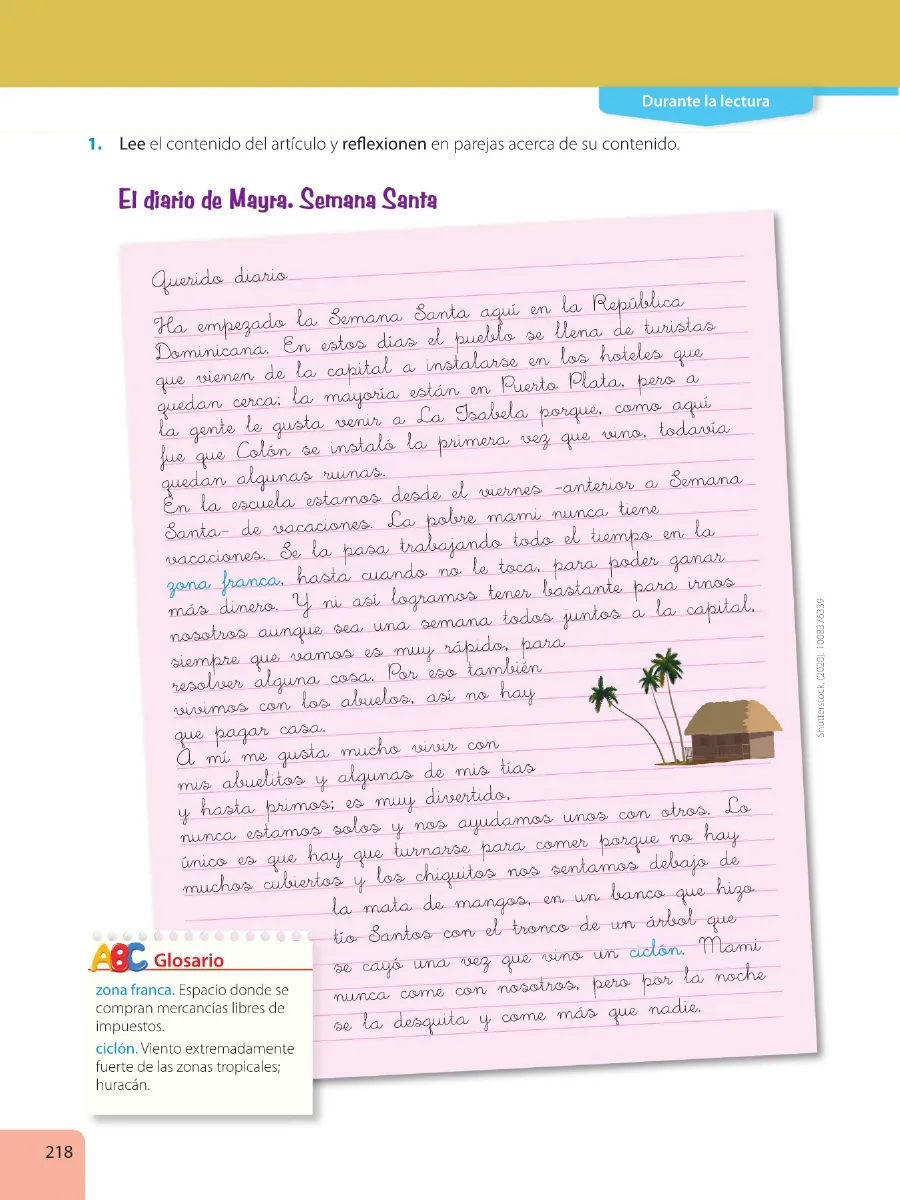 Durante la lectura
1. Lee el contenido del artículo y reflexionen en parejas acerca de su contenido.
El diario de Mayra. Semana Santa
Querido diario
Ha empezado la Semana Santa aquí en la República
Dominicana. En estos días el pueblo se llena de turistas
que vienen de la capital a instalarse en los hoteles que
quedan cerca; la mayoría están en Puerto Plata, pero a
la gente le gusta venir a La Isabela porque, como aquí
fue que Colón se instaló la primera vez que vino, todavía
quedan algunas ruinas.
En la escuela estamos desde el viernes -anterior a Semana
Santa- de vacaciones. La pobre mami nunca tiene
vacaciones. Se la pasa trabajando todo el tiempo en la
zona franca, hasta cuando no le toca, para poder ganar
más dinero. Y ni así logramos tener bastante para irnos
nosotros aunque sea una semana todos juntos a la capital,
siempre que vamos es muy rápido, para
resolver alguna cosa. Por eso también
vivimos con los abuelos, así no hay
que pagar casa.
A mí me gusta mucho vivir con
mis abuelitos y algunas de mis tías
y hasta primos; es muy divertido,
nunca estamos solos y nos ayudamos unos con otros. Lo
único es que hay que turnarse para comer porque no hay
muchos cubiertos y los chiquitos nos sentamos debajo de
la mata de mangos, en un banco que hizo
tío Santos con el tronco de un árbol que
se cayó una vez que vino un ciclón. Mami
nunca come con nosotros, pero por la noche
se la desquita y come más que nadie.
Shutterstock, (2020). 1008376339
ABC Glosario
zona franca. Espacio donde se
compran mercancías libres de
impuestos.
ciclón. Viento extremadamente
fuerte de las zonas tropicales;
huracán.
218